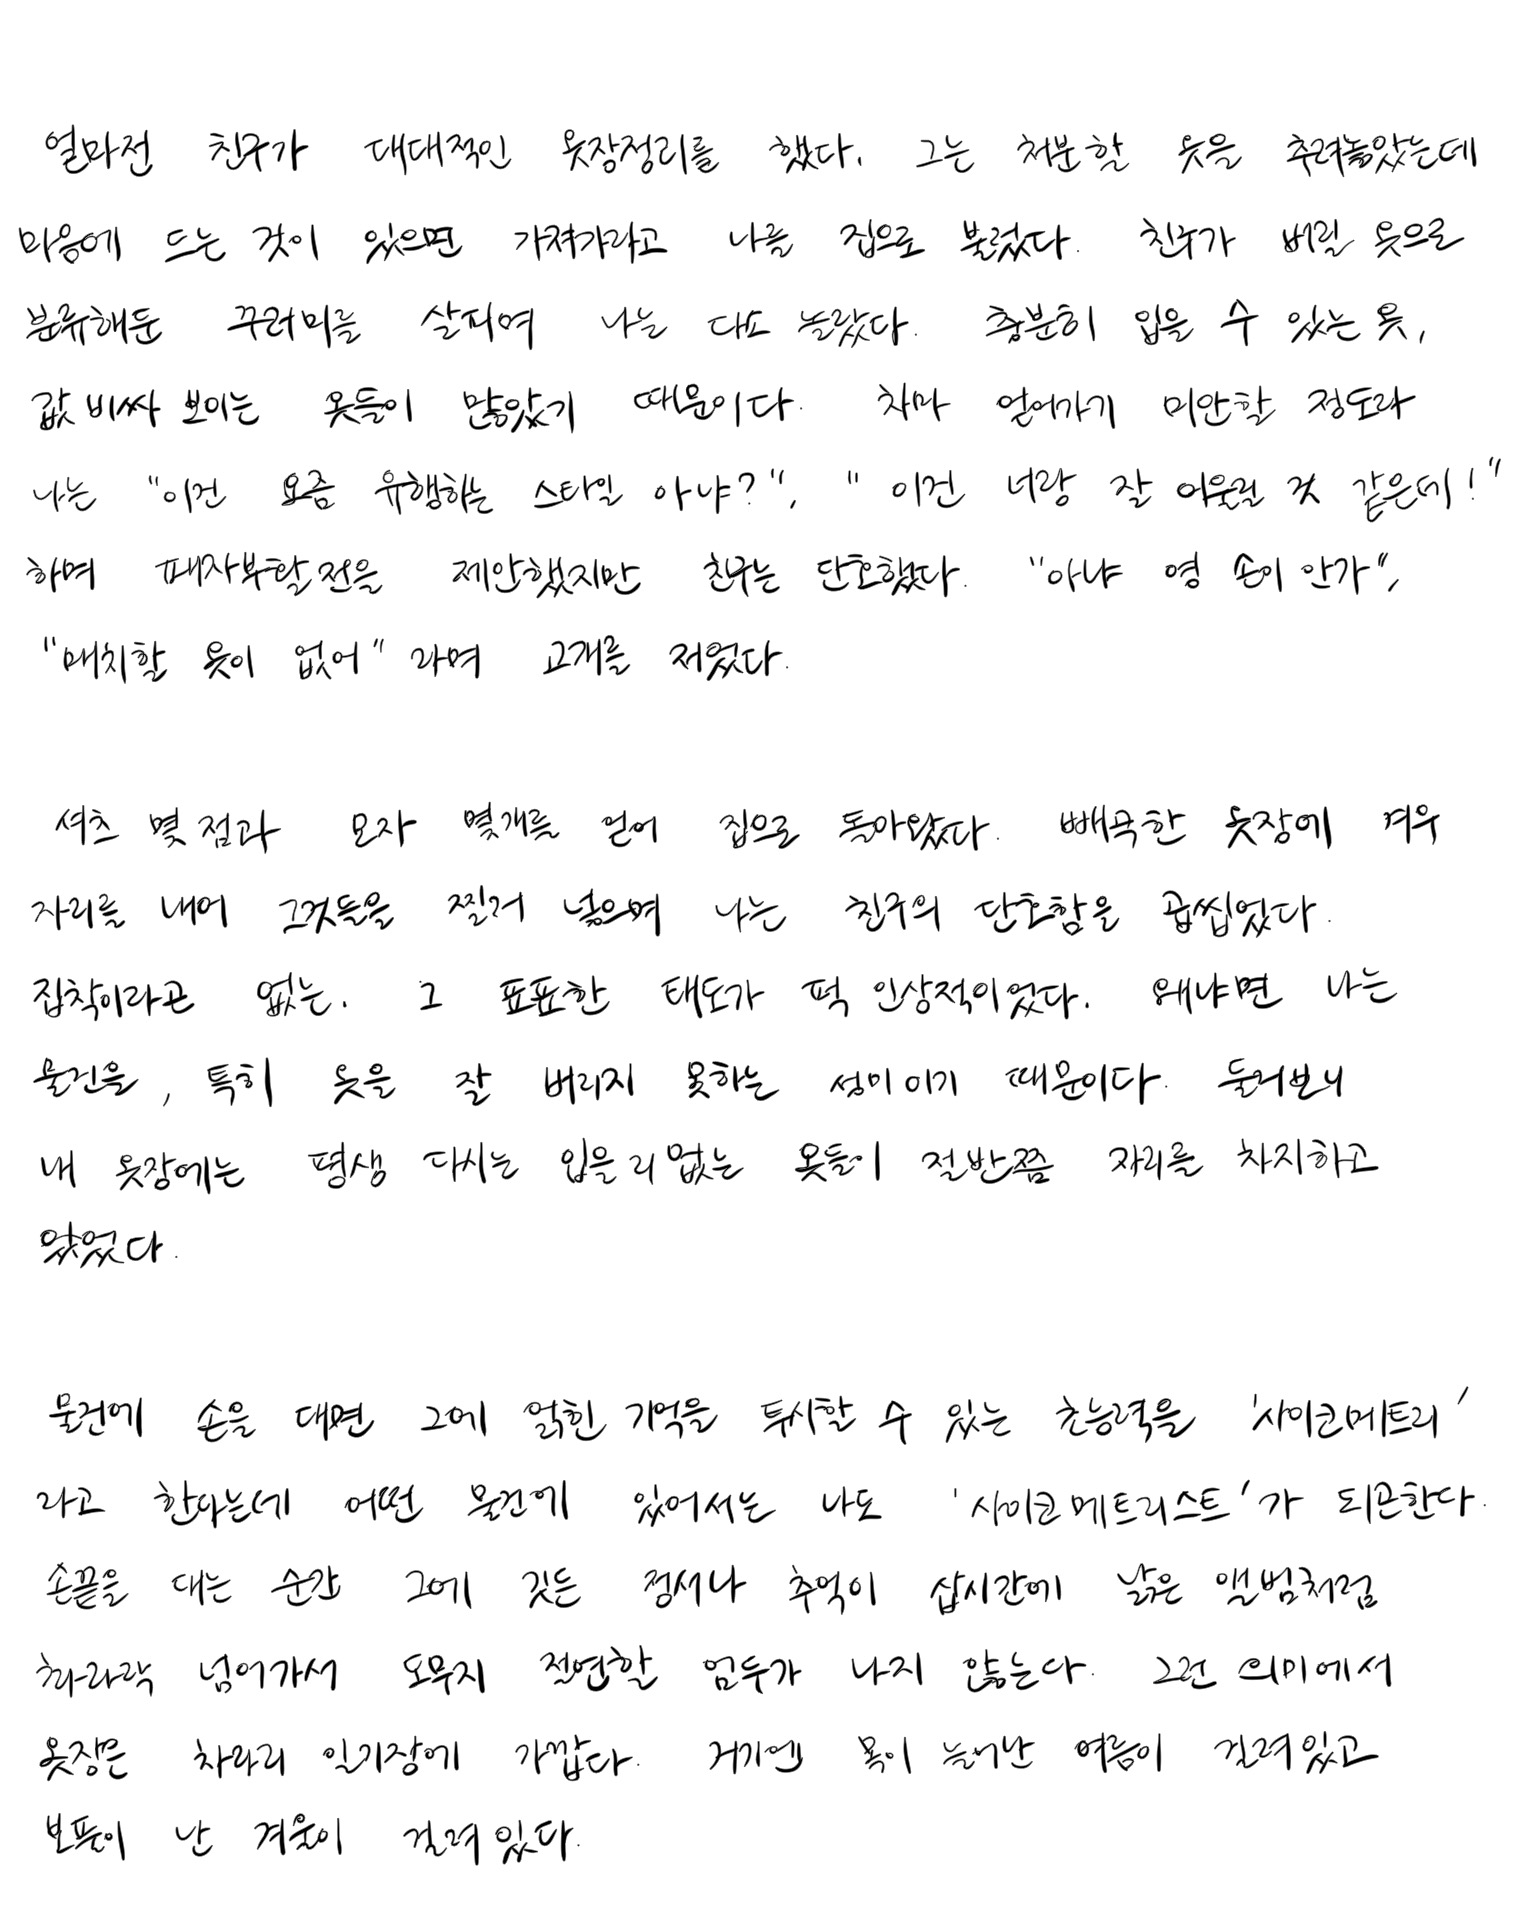 얼마전 친구가 대대적인 옷장정리를 했다. 그는 처분할 옷을 추려놓았는데
마음에 드는 것이 있으면 가져가라고 나를 집으로 불렀다. 친구가 버릴 옷으로
분류해둔 꾸러미를 살피며 나는 다소 놀랐다. 충분히 입을 수 있는 옷,
값 비싸 보이는 옷들이 많았기 때문이다. 차마 얻어가기 미안할 정도라
나는 "이건 요즘 유행하는 스타일 아냐?", "이건 너랑 잘 어울릴 것 같은데!"
하며 패자부활전을 제안했지만 친구는 단호했다. "아냐 영 손이 안가",
"매치할 옷이 없어" 라며 고개를 저었다.
셔츠 몇 점과 모자 몇개를 얻어 집으로 돌아왔다. 빼곡한 옷장에 겨우
자리를 내어 그것들을 찔러 넣으며 나는 친구의 단호함을 곱씹었다.
집착이라곤 없는. 그 표표한 태도가 퍽 인상적이었다. 왜냐면 나는
물건을, 특히 옷을 잘 버리지 못하는 성미이기 때문이다. 둘러보니
내 옷장에는 평생 다시는 입을리없는 옷들이 절반쯤 자리를 차지하고
있었다.
물건에 손을 대면 그에 얽힌 기억을 투시할 수 있는 초능력을 '사이코메트리'
라고 한다는데 어떤 물건에 있어서는 나도 '사이코메트리스트'가 되곤한다.
손끝을 대는 순간 그에 깃든 정서나 추억이 삽시간에 낡은 앨범처럼
촤라락 넘어가서 도무지 절연할 엄두가 나지 않는다. 그런 의미에서
옷장은 차라리 일기장에 가깝다. 거기엔 목이 늘어난 여름이 걸려있고
보풀이 난 겨울이 걸려있다.